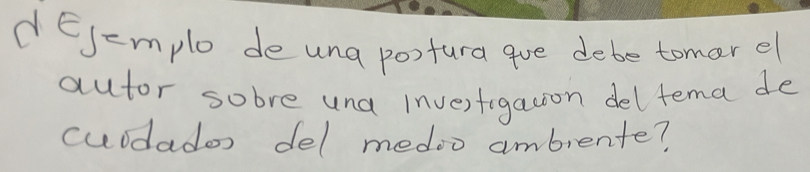 d Ejemplo de una postura que debe tomar el
autor sobre una investigación del tema de
cuidados del medio ambiente?